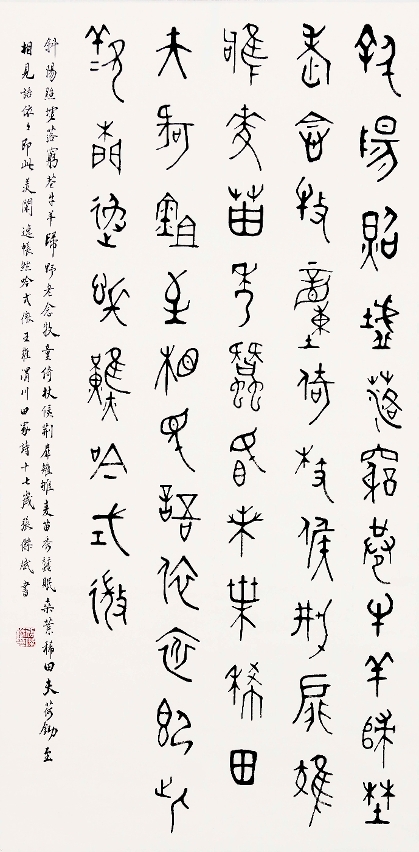 斜陽照墟落窮巷牛羊歸野
老念牧童倚杖候荊扉雉
雊麥苗秀蠶眠桑葉稀田
夫荷鋤至相見語依依即此
羨閒逸悵然吟式微
斜陽照墟落窮巷牛羊歸野老念牧童倚杖候荊扉雉雊麥苗秀蠶眠桑葉稀田夫荷鋤至
相見語依々即此羨閒逸悵然吟式微王維渭川田家詩十七歲張傑書